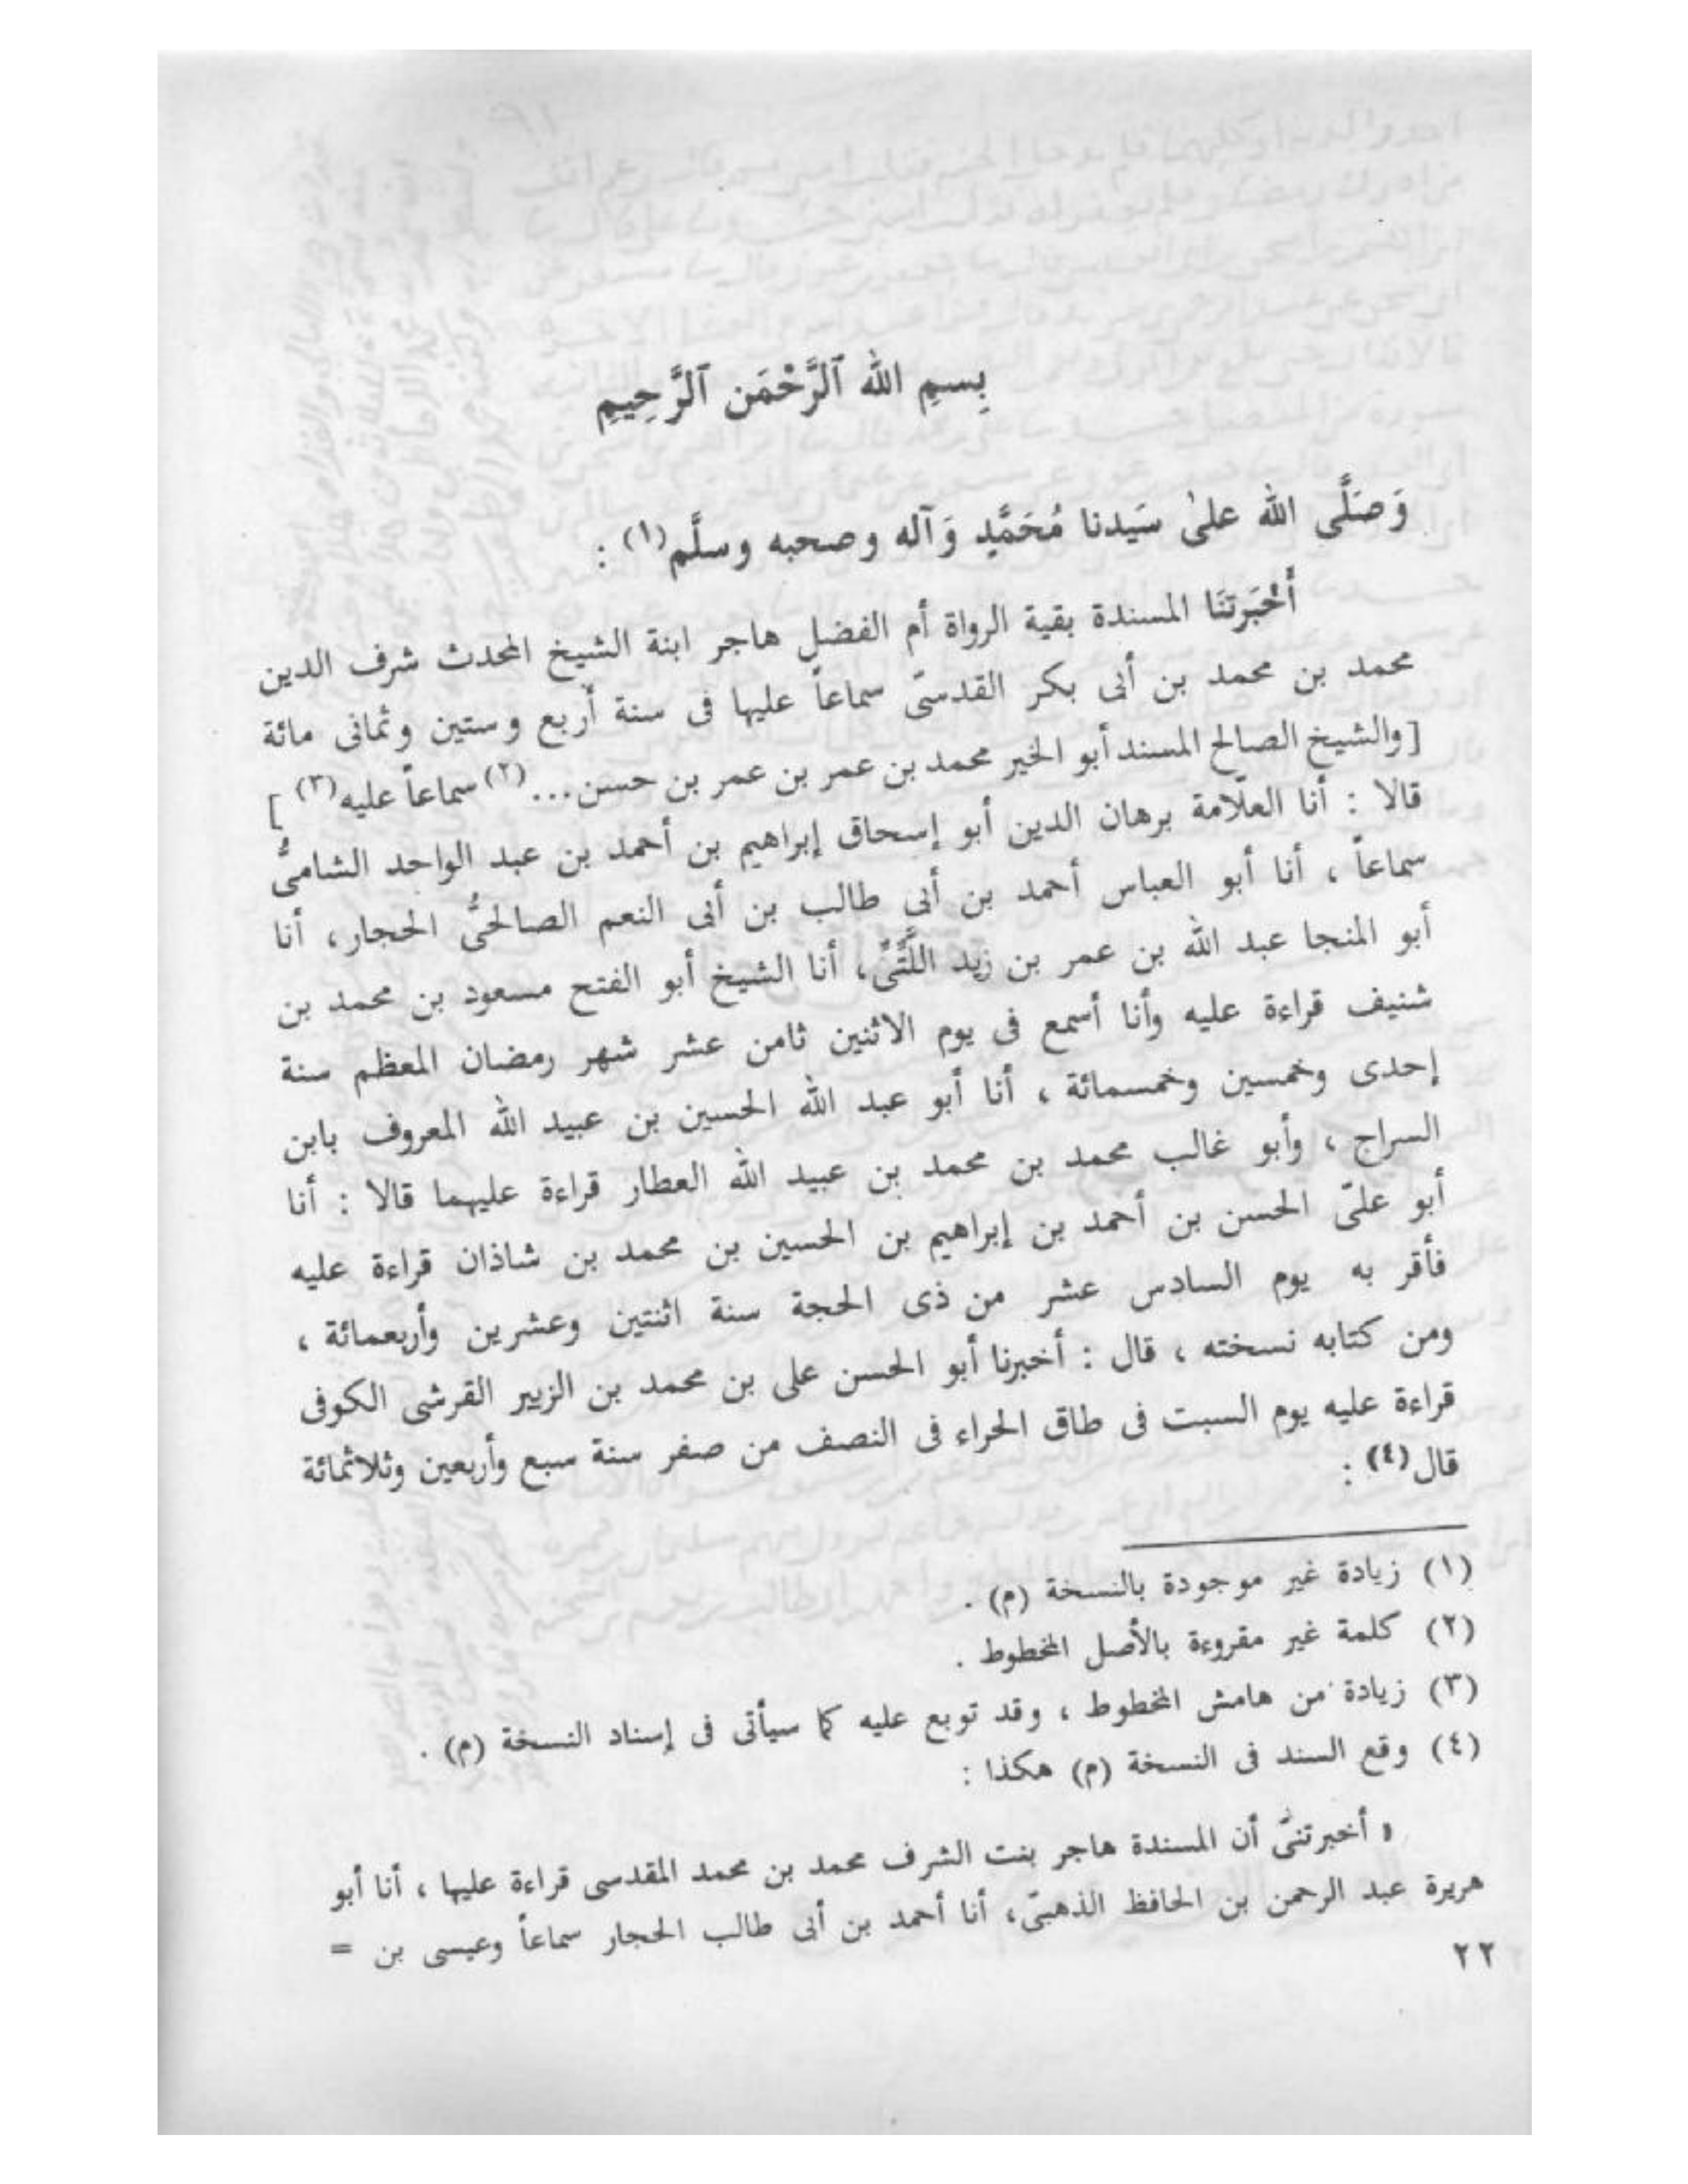 بِسمِ الله ٱلرَّحْمَن ٱلرَّحِيمِ
وَصَلَّى الله علىٰ سَيدنا مُحَمَّدٍ وَآله وصحبه وسلَّم(١) :
أَخْبَرتنَا المسندة بقية الرواة أم الفضل هاجر ابنة الشيخ المحدث شرف الدين
محمد بن محمد بن أبى بكر القدسىّ سماعاً عليها فى سنة أربع وستين وثمانى مائة
[والشيخ الصالح المسند أبو الخير محمد بن عمر بن عمر بن حسن...(٢) سماعاً عليه(٣)]
قالا : أنا العلّامة برهان الدين أبو إسحاق إبراهيم بن أحمد بن عبد الواحد الشامىُّ
سماعاً ، أنا أبو العباس أحمد بن أبي طالب بن أبى النعم الصالحىُّ الحجار، أنا
أبو المنجا عبد الله بن عمر بن زيد اللَّتِّىّ، أنا الشيخ أبو الفتح مسعود بن محمد بن
شنيف قراءة عليه وأنا أسمع فى يوم الاثنين ثامن عشر شهر رمضان المعظم سنة
إحدى وخمسين وخمسمائة ، أنا أبو عبد الله الحسين بن عبيد الله المعروف بابن
السراج ، وأبو غالب محمد بن محمد بن عبيد الله العطار قراءة عليهما قالا : أنا
أبو علىّ الحسن بن أحمد بن إبراهيم بن الحسين بن محمد بن شاذان قراءة عليه
فأقر به يوم السادس عشر من ذى الحجة سنة اثنتين وعشرين وأربعمائة ،
ومن كتابه نسخته ، قال : أخبرنا أبو الحسن على بن محمد بن الزبير القرشى الكوفى
قراءة عليه يوم السبت فى طاق الحراء فى النصف من صفر سنة سبع وأربعين وثلاثمائة
قال(٤) :
(١) زيادة غير موجودة بالنسخة (م) .
(٢) كلمة غير مقروءة بالأصل المخطوط .
(٣) زيادة من هامش المخطوط ، وقد توبع عليه كما سيأتى فى إسناد النسخة (م) .
(٤) وقع السند فى النسخة (م) هكذا :
« أخبرتنىّ أن المسندة هاجر بنت الشرف محمد بن محمد المقدسى قراءة عليها ، أنا أبو
هريرة عبد الرحمن بن الحافظ الذهبىّ، أنا أحمد بن أبى طالب الحجار سماعاً وعيسى بن =
٢٢